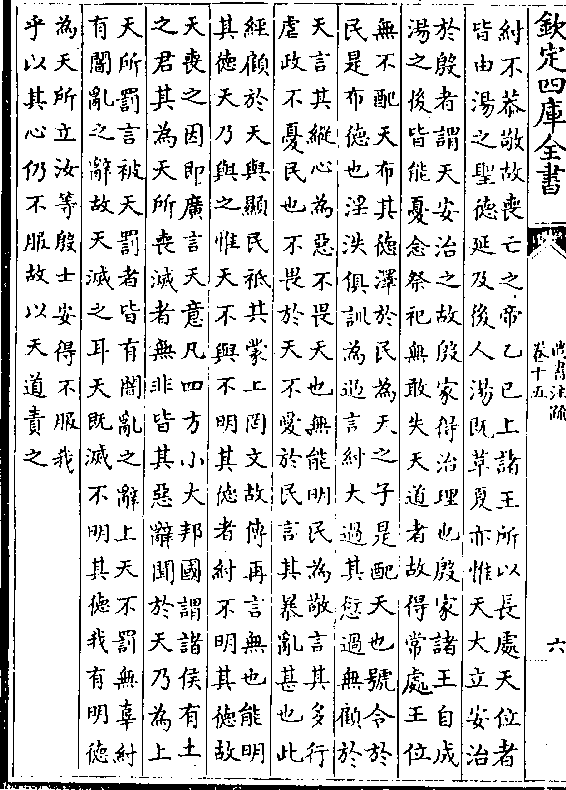 欽定四庫全書
尚書注疏
卷十五
六
紂不恭敬故喪亡之帝乙已上諸王所以長處天位者
皆由湯之聖德延及後人湯既革夏亦惟天大立安治
於殷者謂天安治之故殷家得治理也殷家諸王自成
湯之後皆能憂念祭祀無敢失天道者故得常處王位
無不配天布其德澤於民為天之子是配天也號令於
民是布德也淫泆俱訓為過言紂大過其愆過無顧於
天言其縱心為惡不畏天也無能明民為敬言其多行
虐政不憂民也不畏於天不愛於民言其暴亂甚也此
經顧於天與顯民祗其蒙上罔文故傳再言無也能明
其德天乃與之惟天不與不明其德者紂不明其德故
天喪之因即廣言天意凡四方小大邦國謂諸侯有土
之君其為天所喪滅者無非皆其惡辭聞於天乃為上
天所罰言被天罰者皆有闇亂之辭上天不罰無辜紂
有闇亂之辭故天滅之耳天既滅不明其德我有明德
為天所立汝等殷士安得不服我
乎以其心仍不服故以天道責之